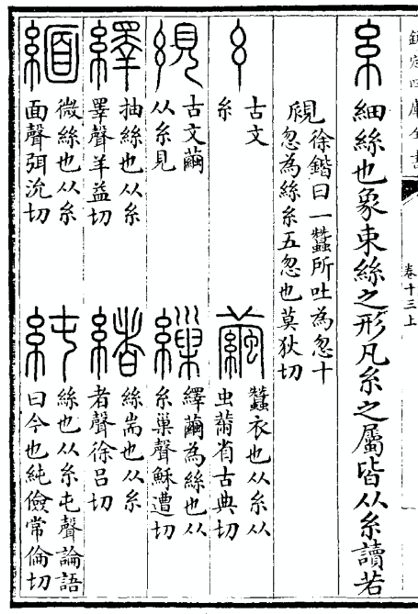 欽定四庫全書
卷十三上
糸細絲也象束絲之形凡糸之屬皆从糸讀若
覛
徐鍇曰一蠶所吐為忽十
忽為絲糸五忽也莫狄切
古文
糸
繭
蠶衣也从糸从
虫黹省古典切
絸
古文繭
从糸見
繅
繹繭為絲也从
糸巢聲穌遭切
繹
抽絲也从糸
睪聲羊益切
緒
絲耑也从糸
者聲徐吕切
緬
微絲也从糸
面聲弭沇切
純
絲也从糸屯聲論語
曰今也純儉常倫切